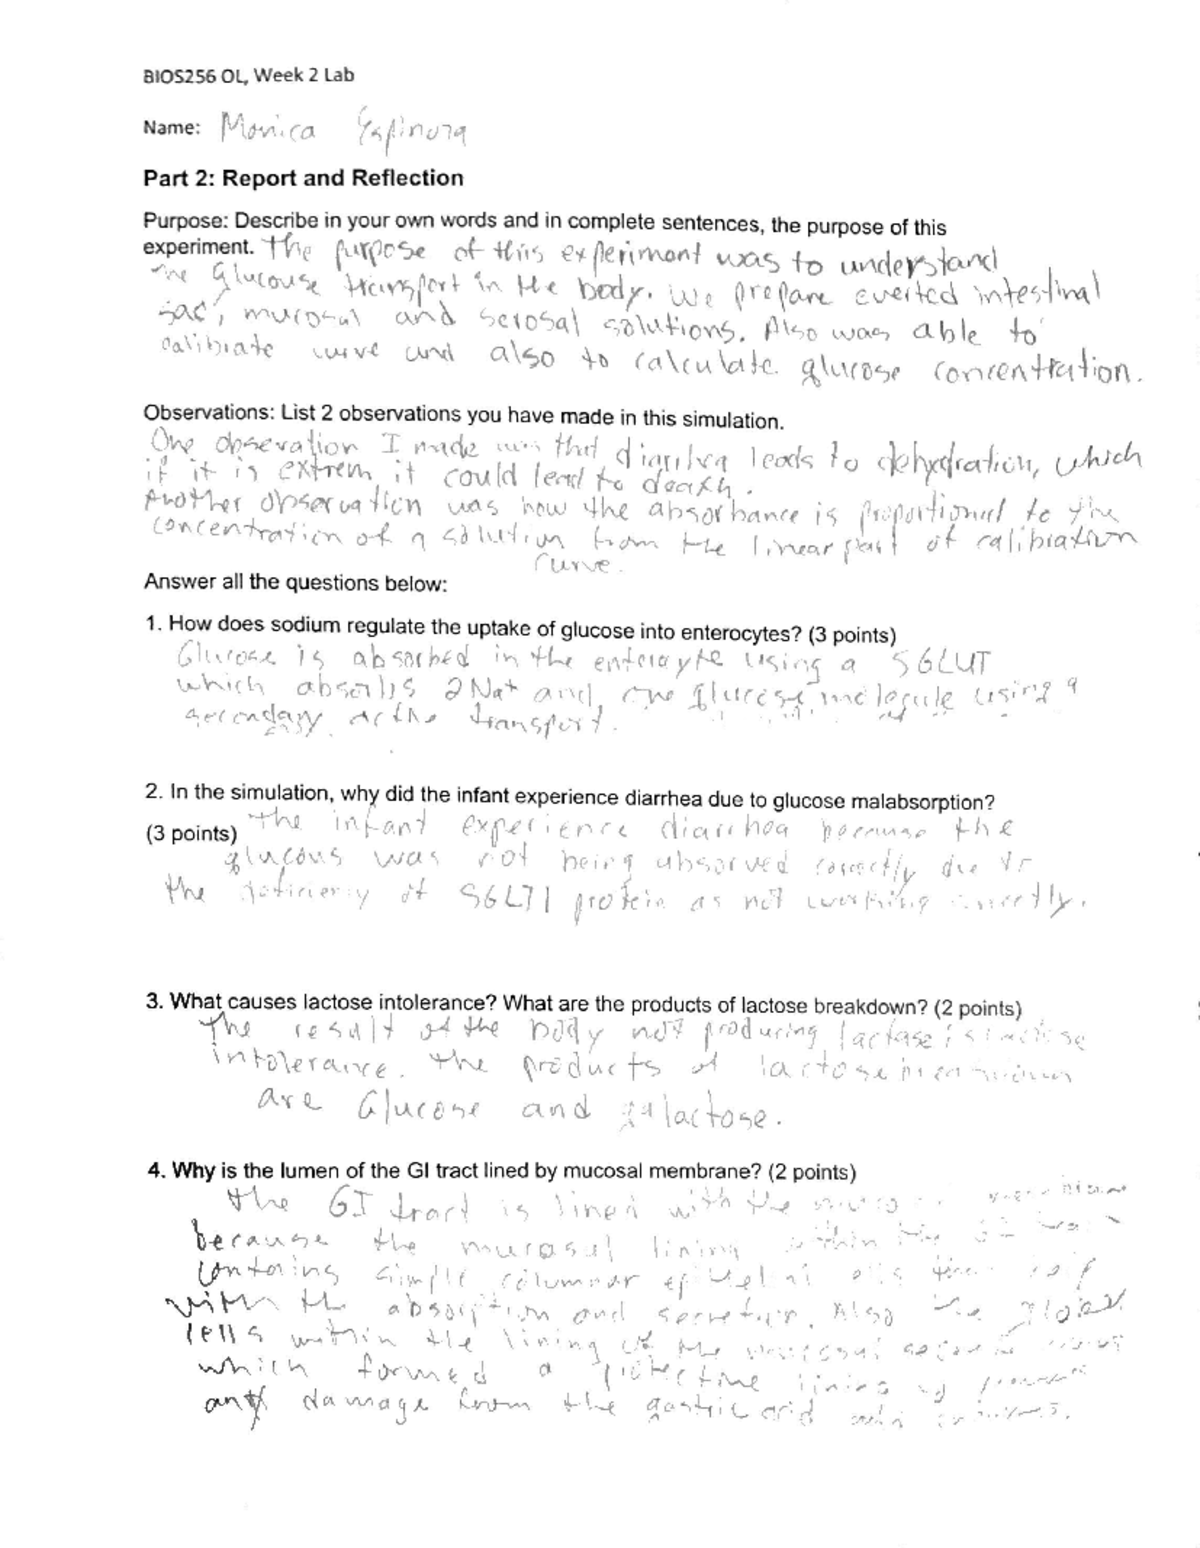 BIOS256 OL, Week 2 Lab
Name: Monica Espinoza
Part 2: Report and Reflection
Purpose: Describe in your own words and in complete sentences, the purpose of this
experiment. The purpose of this experiment was to understand
the Glucouse transport in the body. We prepare everted intestinal
sac, mucosal and serosal solutions. Also was able to
calibrate curve and also to calculate glucose concentration.
Observations: List 2 observations you have made in this simulation.
One obsevation I made was that diarrhea leads to dehydration, which
if it is extrem it could lead to death.
Another observation was how the absorbance is proportional to the
concentration of a solution from the linear part of calibration
curve.
Answer all the questions below:
1. How does sodium regulate the uptake of glucose into enterocytes? (3 points)
Glucose is absorbed in the enterocyte using a SGLUT
which absorbs 2Na+ and one glucose molecule using a
secondary active transport.
2. In the simulation, why did the infant experience diarrhea due to glucose malabsorption?
(3 points) The infant experience diarrhea because the
glucous was not being absorved correctly due to
the deficiency of SGLT1 protein as not working correctly.
3. What causes lactose intolerance? What are the products of lactose breakdown? (2 points)
The result of the body not producing lactase is lactose
intolerance. The products of lactose breakdown
are Glucose and galactose.
4. Why is the lumen of the GI tract lined by mucosal membrane? (2 points)
The GI tract is lined with the membrane
because the mucosal lining within the
contaings simple columnar epithelial
with the absorption and secretion. Also the globet
cells within the lining of the mucosal
which formed a protective lining
any damage from the gastric acid and